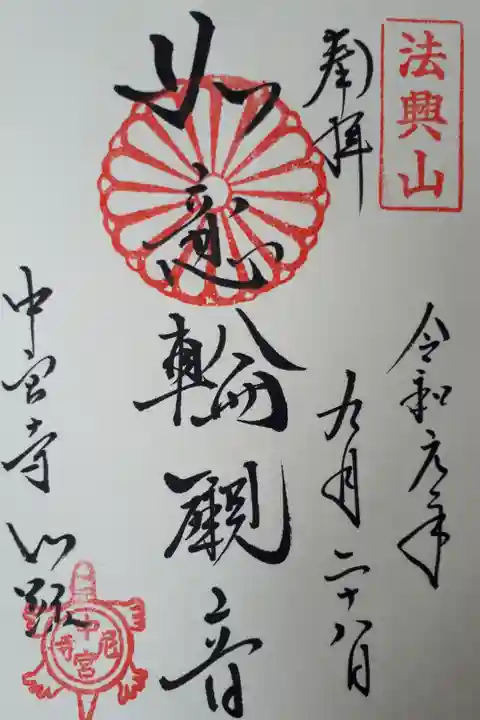 法興山
奉拝
令和元年
九月二十八日
如意輪観音
中宮寺
中宮尼寺